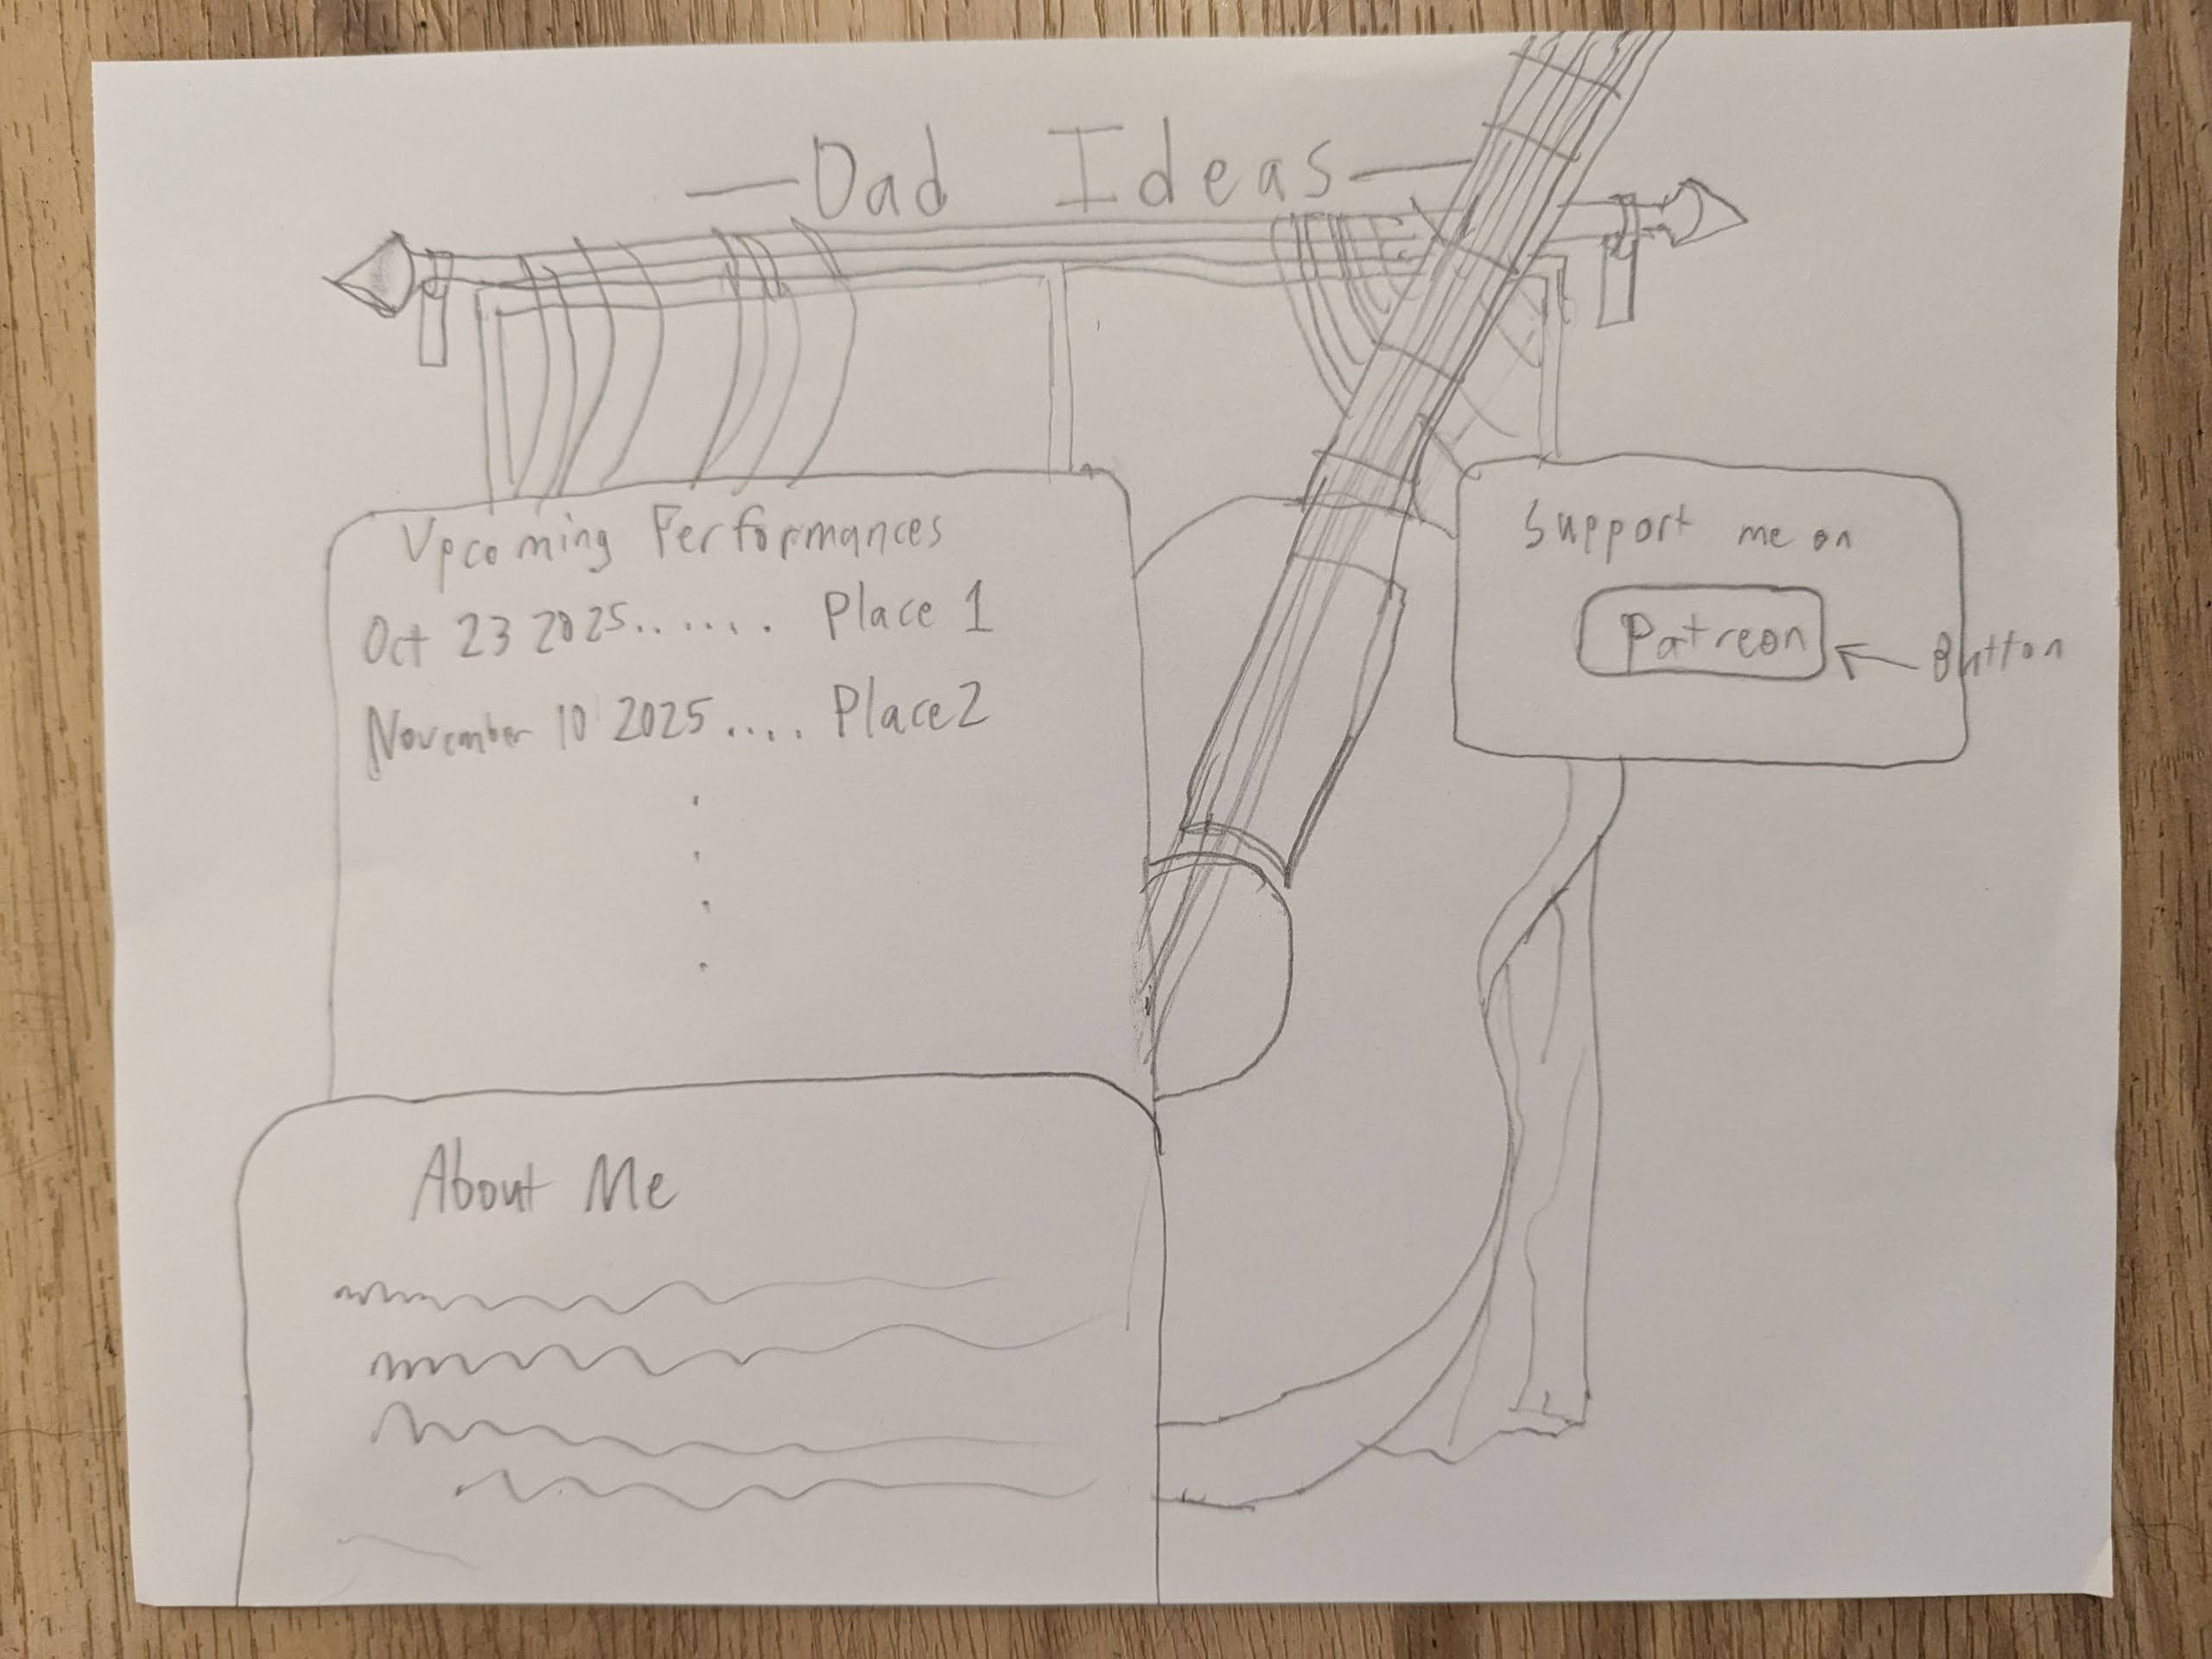 —Dad Ideas—
Upcoming Performances
Oct 23 2025....... Place 1
November 10 2025.... Place 2
Support me on
Patreon
Button
About Me